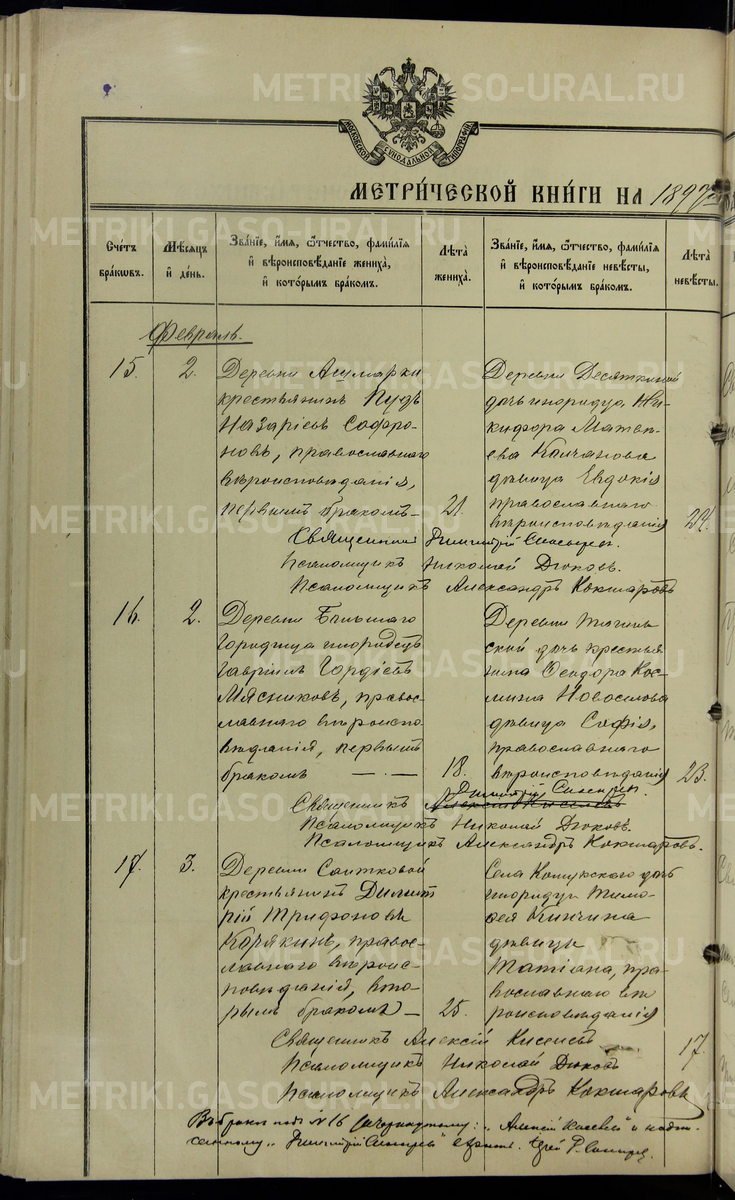 МОСКОВСКОЙ СѴНОДАЛЬНОЙ ТИПОГРАФІИ
МЕТРИ́ЧЕСКОЙ КНИ́ГИ НА 1897
Сче́тъ бра́кωвъ.
Мѣ́сяцъ и҆ де́нь.
Зва́нїе, и҆́мя, ѻ҆́тчество, фами́лїя и҆ вѣроисповѣ́данїе жениха̀, и҆ кото́рымъ бра́комъ.
Лѣ́та жениха̀.
Зва́нїе, и҆́мя, ѻ҆́тчество, фами́лїя и҆ вѣроисповѣ́данїе невѣ́сты, и҆ кото́рымъ бра́комъ.
Лѣ́та невѣ́сты.
Февраль.
15. 2.
Деревни Ашмарки
крестьянинъ Пудъ
Назаріевъ Софро-
новъ, православнаго
вѣроисповѣданія,
первымъ бракомъ- 21.
Деревни Десяткиной
дочь инородца Ни-
кифора Матѳ-
еева Колчанова
дѣвица Евдокія
православнаго
вѣроисповѣданія 24.
Священникъ Димитрій
Псаломщикъ Николай Дюковъ.
Псаломщикъ Александръ Кокшаровъ
16. 2.
Деревни Большаго
Городища инородецъ
Гавріилъ Гордіевъ
Мясниковъ, право-
славнаго вѣроиспо-
вѣданія, первымъ
бракомъ — 18.
Деревни
ской дочь крестья
нина Ѳеодора Кос-
мина Новоселова
дѣвица Софія,
православнаго
вѣроисповѣданія 23.
Димитрій
Священникъ Алексій Киселевъ
Псаломщикъ Николай Дюковъ.
Псаломщикъ Александръ Кокшаровъ.
17. 3.
Деревни Саитковой
крестьянинъ Димит
рій Трифоновъ
Корякинъ, право-
славнаго вѣроис-
повѣданія, вто-
рымъ бракомъ — 25.
Села дочь
инородца Тимо-
ѳея Кинчина
дѣвица
Татіана, пра-
вославнаго вѣ
роисповѣданія 17.
Священникъ Алексій Киселевъ
Псаломщикъ Николай Дюковъ
Псаломщикъ Александръ Кокшаровъ
Въ бракѣ подъ №16 зачеркнутому: "Алексій Киселевъ" и надпи-
санному "Димитрій
METRIKI.GASO-URAL.RU